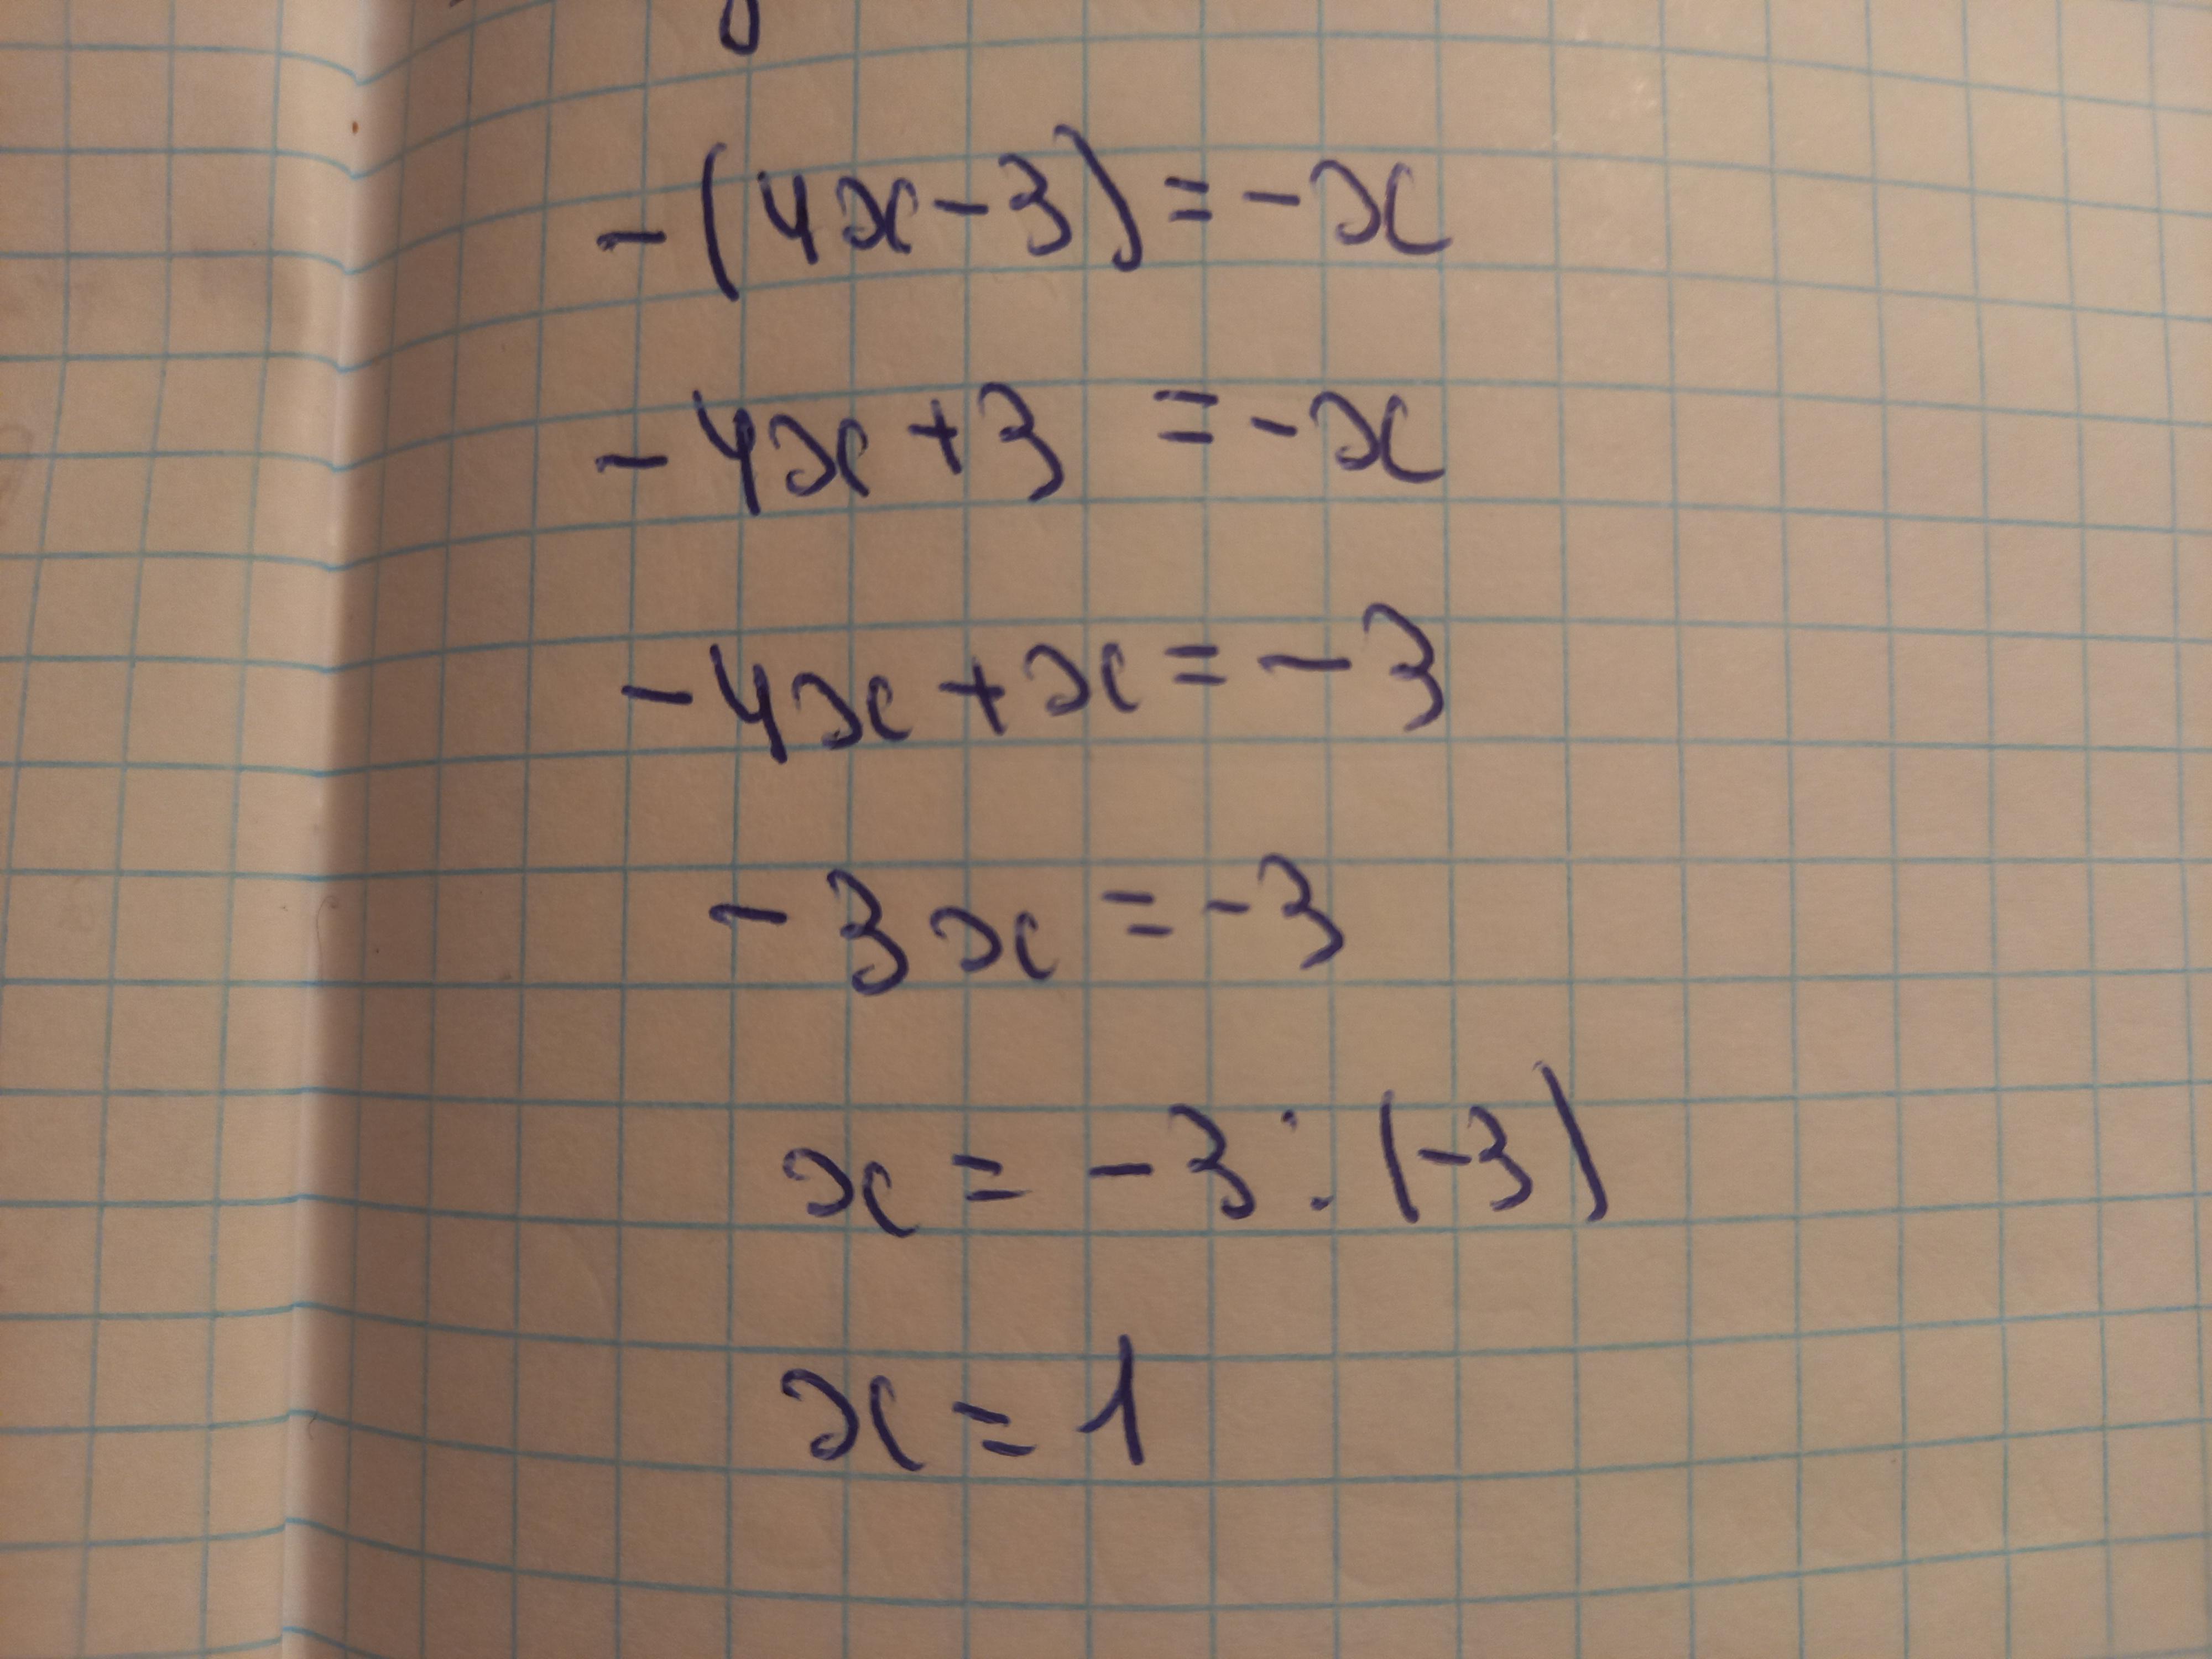 -(4x-3)=-x
-4x+3 =-x
-4x+x=-3
-3x=-3
x=-3:(-3)
x=1